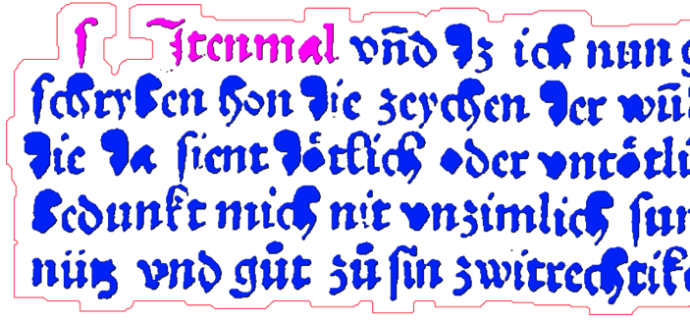 ſ Jtenmal vñd dz ich nun
ſchryben hon die zeychen der wū
die da ſient doͤtlich oder vntoͤtli
Bedunkt mich nit vnzimlich ſun
nütz vnd guͦt zuͦ ſin zwitrechtik